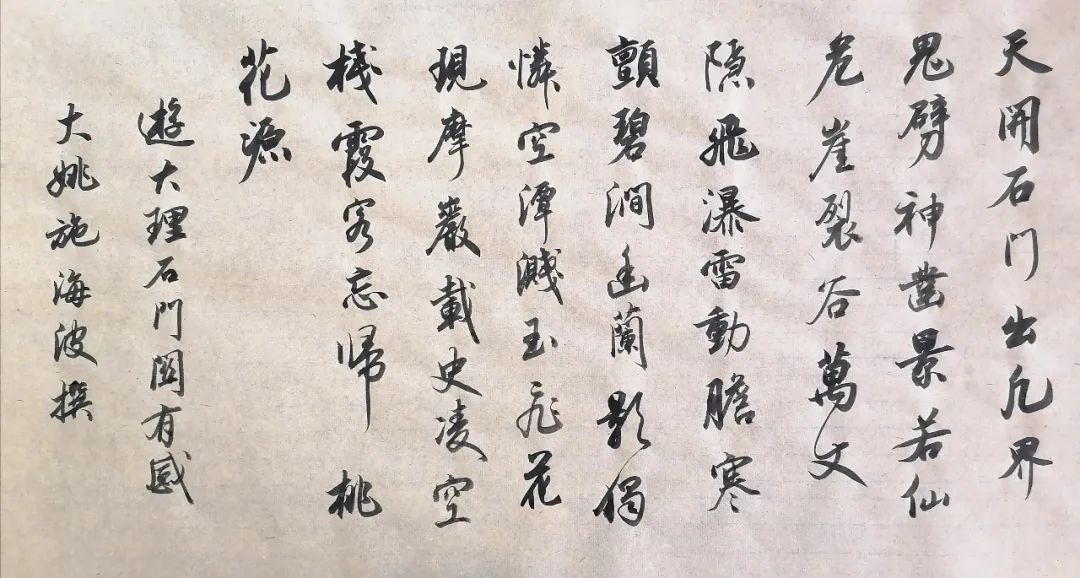 天開石门出凡界
鬼劈神凿景若仙
危崖裂谷萬丈
隐飛瀑雷動膽寒
顫碧澗幽蘭影獨
憐空潭濺玉飛花
現摩巖載史凌空
棧霞客忘歸桃
花源
遊大理石門關有感
大姚施海波撰